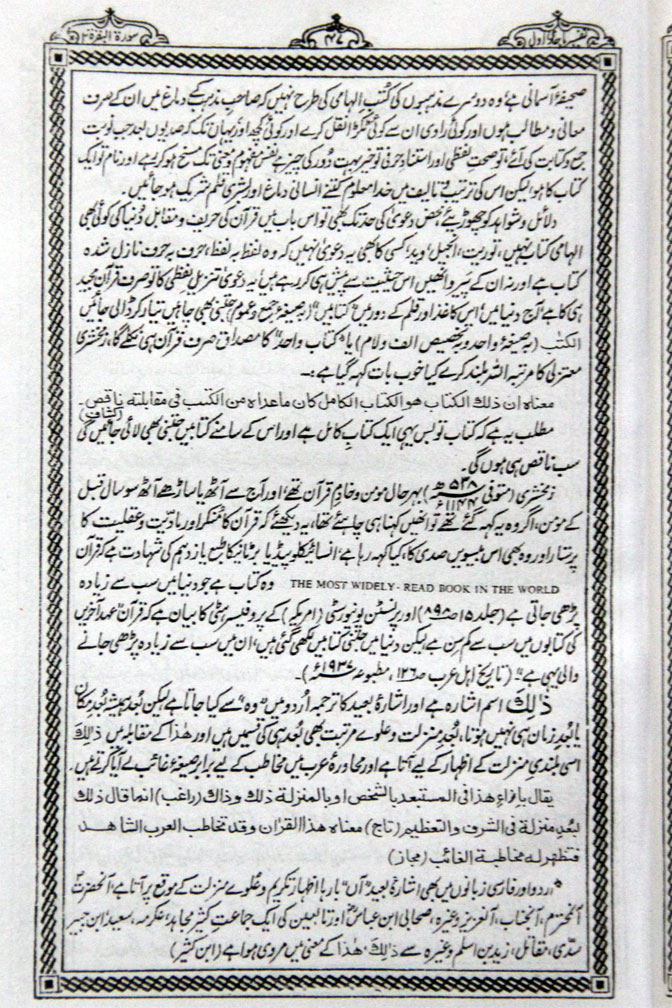 سورۃ البقرۃ ۲
۴۷
تفسیر ماجدی اول
صحیفۂ آسمانی ہے، وہ دوسرے مذہبوں کی کُتب الہامی کی طرح نہیں کہ صاحب مذہب کے دماغ میں ان کے صرف
معانی و مطالب ہوں اور کوئی راوی ان کے کوئی ٹکڑا نقل کرے اور کوئی کچھ اور یہاں تک کہ صدیوں بعد جب نوبت
جمع و کتابت کی آئے، تو صحتِ لفظی اور استنادِ حرفی تو خیر بہت دُور کی چیز ہے نفسِ مفہوم و معنی تک مسخ ہو کر رہے اور نام تو ایک
کتاب کا ہو لیکن اس کی ترتیب و تالیف میں خدا معلوم کتنے انسانی دماغ اور بشری قلم شریک ہو جائیں۔
دلائل و شواہد کو چھوڑیئے، محض دعویٰ کی حد تک بھی تو اس باب میں قرآن کی حریف و مقابل دُنیا کی کوئی بھی
الہامی کتاب نہیں، توریت، انجیل، وید، کسی کا بھی یہ دعویٰ نہیں کہ وہ لفظ بہ لفظ، حرف بہ حرف نازل شدہ
کتاب ہے اور نہ ان کے پیرو انھیں اس حیثیت سے پیش ہی کر رہے ہیں، یہ دعویٰ تنزیلِ لفظی کا تو صرف قرآن مجید
ہی کا ہے، آج دنیا میں اس کاغذ اور قلم کے دور میں "کتابیں" (بہ صیغۂ جمع و عموم) جتنی بھی چاہیں تیار کر ڈالی جائیں
الکتٰب (بہ صیغۂ واحد و بہ تخصیص الف و لام) یا "کتاب واحد" کا مصداق صرف قرآن ہی نکلے گا، زمخشری
معتزلی کا مرتبہ اللہ بلند کرے کیا خوب بات کہہ گیا ہے:۔
معناہ ان ذٰلك الکتاب ھو الکتاب الکامل کان ماعداہ من الکتب فی مقابلتہ ناقص۔ (کشاف)
مطلب یہ ہے کہ کتاب تو بس یہی ایک کتاب کامل ہے اور اس کے سامنے کتابیں جتنی بھی لائی جائیں گی
سب ناقص ہی ہوں گی۔
زمخشری (متوفی ۵۳۸ھ ۱۱۴۴ء) بہرحال مومن و خادمِ قرآن تھے، اور آج سے آٹھ یا ساڑھے آٹھ سو سال قبل
کے مومن، اگر وہ یہ کہہ گئے تھے تو انھیں کہنا ہی چاہئے تھا، یہ دیکھئے کہ قرآن کا مُنکر اور مادّیت و عقلیت کا
پرستار اور وہ بھی اس بیسویں صدی کا، کیا کہہ رہا ہے، انسائیکلوپیڈیا برٹانیکا طبع یازدہم کی شہادت ہے کہ قرآن
THE MOST WIDELY-READ BOOK IN THE WORLD وہ کتاب ہے جو دنیا میں سب سے زیادہ
پڑھی جاتی ہے (جلد ۱۵ ص۸۹۸) اور پرنسٹن یونیورسٹی (امریکہ) کے پروفیسر ہٹی کا بیان ہے کہ قرآن "عہد آفریں
کی کتابوں میں سب سے کم سِن ہے لیکن دنیا میں جتنی کتابیں لکھی گئی ہیں، ان میں سب سے زیادہ پڑھی جانے
والی یہی ہے" (تاریخ اہل عرب ص۱۲۶، مطبوعہ ۱۹۳۷ء)۔
ذٰلِكَ اسم اشارہ ہے اور اشارۂ بعید کا ترجمہ اُردو میں "وہ" سے کیا جاتا ہے لیکن بُعد ہمیشہ بُعدِ مکان
یا بُعدِ زمان ہی نہیں ہوتا، بُعدِ منزلت و علوے مرتبت بھی بُعد ہی کی قسمیں ہیں اور ھٰذا کے مقابلہ میں ذٰلِكَ
اسی بلندی منزلت کے اظہار کے لیے آتا ہے اور محاورۂ عرب میں مخاطب کے لیے برابر صیغۂ غائب لے آیا کرتے ہیں۔
یقال بازاء ھذا فی المستبعد بالشخص او بالمنزلة ذلك وذاك (راغب) انما قال ذلك
لبعد منزلة فی الشرف والتعظیم (تاج) معناہ ھذا القراٰن وقد تخاطب العرب الشاھد
فتظھر لہ مخاطبة الغائب (مجاز)
اردو اور فارسی زبانوں میں بھی اشارۂ بعید "آں" بارہا اظہارِ تکریم و عُلوے منزلت کے موقع پر آتا ہے، آنحضرتؐ
آنمحترم، آنجناب، آنعزیز وغیرہ، صحابی ابن عباسؓ اور تابعین کی ایک جماعتِ کثیر مجاہد، عکرمہ، سعید ابن جبیر
سدّی، مقاتل، زید بن اسلم وغیرہ سے ذٰلِكَ، ھٰذا کے معنی میں مروی ہوا ہے (ابن کثیر)